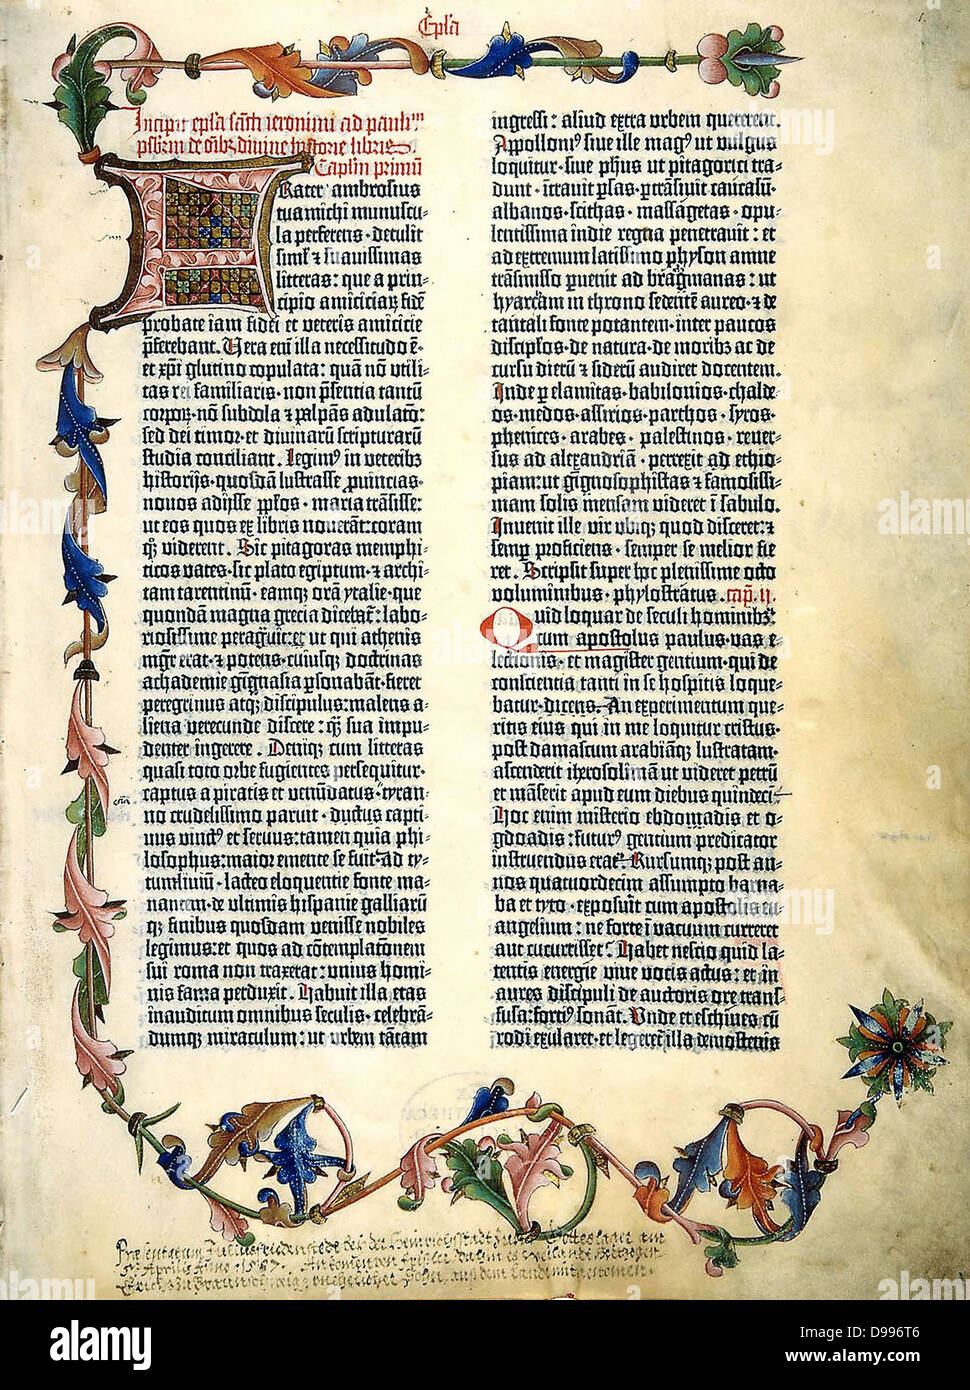 Epl̃a
Incipit epl̃a sancti ieronimi ad paulinū
presbiterum de omībꝫ divine historie libris.
Capl̃m primū
Frater ambrosius
tua michi munuscu-
la perferens · detulit
simĺ & suavissimas
litteras: que a prin-
cipio amiciciaꝝ fidē
probate iam fidei et veteris amicicie
p̄ferebant. Vera enī illa necessitudo ē·
et xp̄i glutino copulata: quā nō utili-
tas rei familiaris · nō p̄sentia tantū
corpoꝝ· nō subdola & palpās adulacō:
sed dei timor · et divinarū scripturarū
studia conciliant. Legim⁹ in veteribꝫ
historijs· quosdā lustrasse ꝓuincias·
novos adijsse pp̄los · maria trāsisse:
ut eos quos ex libris noverāt: coram
qꝫ viderent. Sic pitagoras memphi-
ticos vates· sic plato egiptum · & archi-
tam tarentinū· eamqꝫ orā ytalie· que
quondā magna grecia dicebat̄: labo-
riosissime peragrāvit: et ut qui athenis
mḡr erat· & potens· cuiusqꝫ doctrinas
achademie gignasia ꝑsonabāt · fieret
peregrinus atqꝫ discipulus: malens a-
liena verecunde discere: qꝫ sua impu-
denter ingerere. Deniqꝫ cum litteras
quasi toto orbe fugientes persequitur·
captus a piratis et venūdatus · tyran-
no crudelissimo paruit · ductus capti-
vus vinct⁹ et servus: tamen quia phi-
losophus: maior emente se fuit. Ad ty-
tumlivium · lacteo eloquentie fonte ma-
nantem· de ultimis hispanie galliarū
qꝫ finibus· quosdam venisse nobiles
legimus: et quos ad cōtemplatōnem
sui roma non traxerat: unius homi-
nis fama perduxit. Habuit illa etas
inauditum omnibus seculis· celebrā-
dumqꝫ miraculum: ut urbem tātam
ingressi: aliud extra urbem quererent.
Appolloni⁹ sive ille mag⁹ ut vulgus
loquitur· sive ph̄us ut pitagorici tra-
dunt· intravit ꝑsas· ꝑtrāsivit caucasū·
albanos· scithas · massagetas · opu-
lentissima indie regna penetravit: et
ad extremum latissimo physon amne
trāsmisso ꝑvenit ad bragmanas: ut
hyarcam in throno sedentē aureo· & de
tantali fonte potantem · inter paucos
discipl̃os· de natura· de moribꝫ ac de
cursu dierū & siderū audiret docentem.
Inde ꝑ elamitas· babilonios· chalde-
os· medos· assirios· parthos · syros·
phenices· arabes· palestinos· rever-
sus ad alexandriā · perrexit ad ethio-
piam: ut gignosophistas & famosissi-
mam solis mensam videret ī sabulo.
Invenit ille vir ubiqꝫ quod disceret: &
semꝑ proficiens· semper se melior fie-
ret. Scripsit super hoc plenissime octo
voluminibus· phylostratus. cap̄. ii.
Quid loquar de seculi hominibꝫ·
cum apostolus paulus· vas e-
lectionis· et magister gentium· qui de
conscientia tanti in se hospitis loque-
batur· dicens. An experimentum que-
ritis eius qui in me loquitur cristus·
post damascum arabiāqꝫ lustratam·
ascenderit iherosolimā ut videret petrū
et māserit apud eum diebus quindeci.
Hoc enim misterio ebdomadis et o-
gdoadis: futur⁹ gentium predicator
instruendus erat̄. Rursumqꝫ post an-
nos quatuordecim assumpto barna-
ba et tyto · exposuit cum apostolis ev-
angelium: ne forte ī vacuum curreret
aut cucurrisset. Habet nescio quid la-
tentis energie· vive vocis actus: et in
aures discipuli de auctoris ore trans-
fusa: forti⁹ sonat. Unde et eschines cū
rodi exularet· et legeret̄ illa demostenis
alamy
D996T6
www.alamy.com